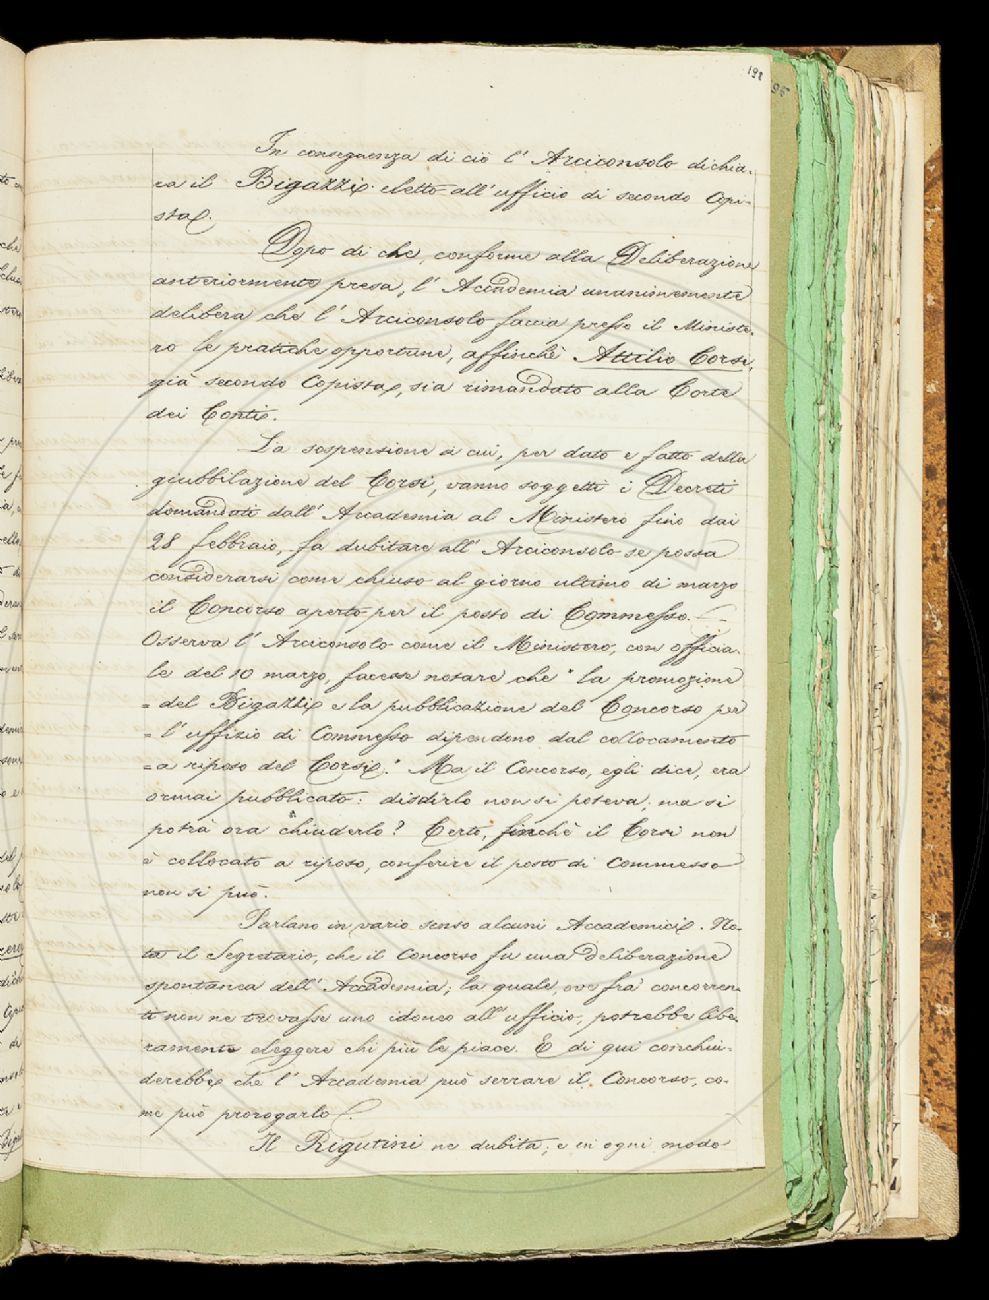 198
95
In conseguenza di ciò l'Arciconsolo dichia-
ra il Bigazzi eletto all'ufficio di secondo Copi-
sta.
Dopo di che, conforme alla Deliberazione
anteriormente presa, l'Accademia unanimemente
delibera che l'Arciconsolo faccia presso il Ministe-
ro le pratiche opportune, affinchè Attilio Corsi,
già secondo Copista, sia rimandato alla Corte
dei Conti.
La sospensione a cui, per dato e fatto della
giubbilazione del Corsi, vanno soggetti i Decreti
domandati dall'Accademia al Ministero fino dai
28 febbraio, fa dubitare all'Arciconsolo se possa
considerarsi come chiuso al giorno ultimo di marzo
il Concorso aperto per il posto di Commesso.
Osserva l'Arciconsolo come il Ministero, con officia-
le del 10 marzo, facesse notare che "la promozione
= del Bigazzi e la pubblicazione del Concorso per
= l'uffizio di Commesso dipendono dal collocamento
= a riposo del Corsi." Ma il Concorso, egli dice, era
ormai pubblicato: disdirlo non si poteva; ma si
potrà ora chiuderlo? Certo, finchè il Corsi non
è collocato a riposo, conferire il posto di Commesso
non si può.
Parlano in vario senso alcuni Accademici. No-
ta il Segretario, che il Concorso fu una deliberazione
spontanea dell'Accademia; la quale, ove fra' concorren-
ti non ne trovasse uno idoneo all'ufficio, potrebbe libe-
ramente eleggere chi più le piace. E di qui conchiu-
derebbe che l'Accademia può serrare il Concorso, co-
me può prorogarlo.
Il Rigutini ne dubita; e in ogni modo